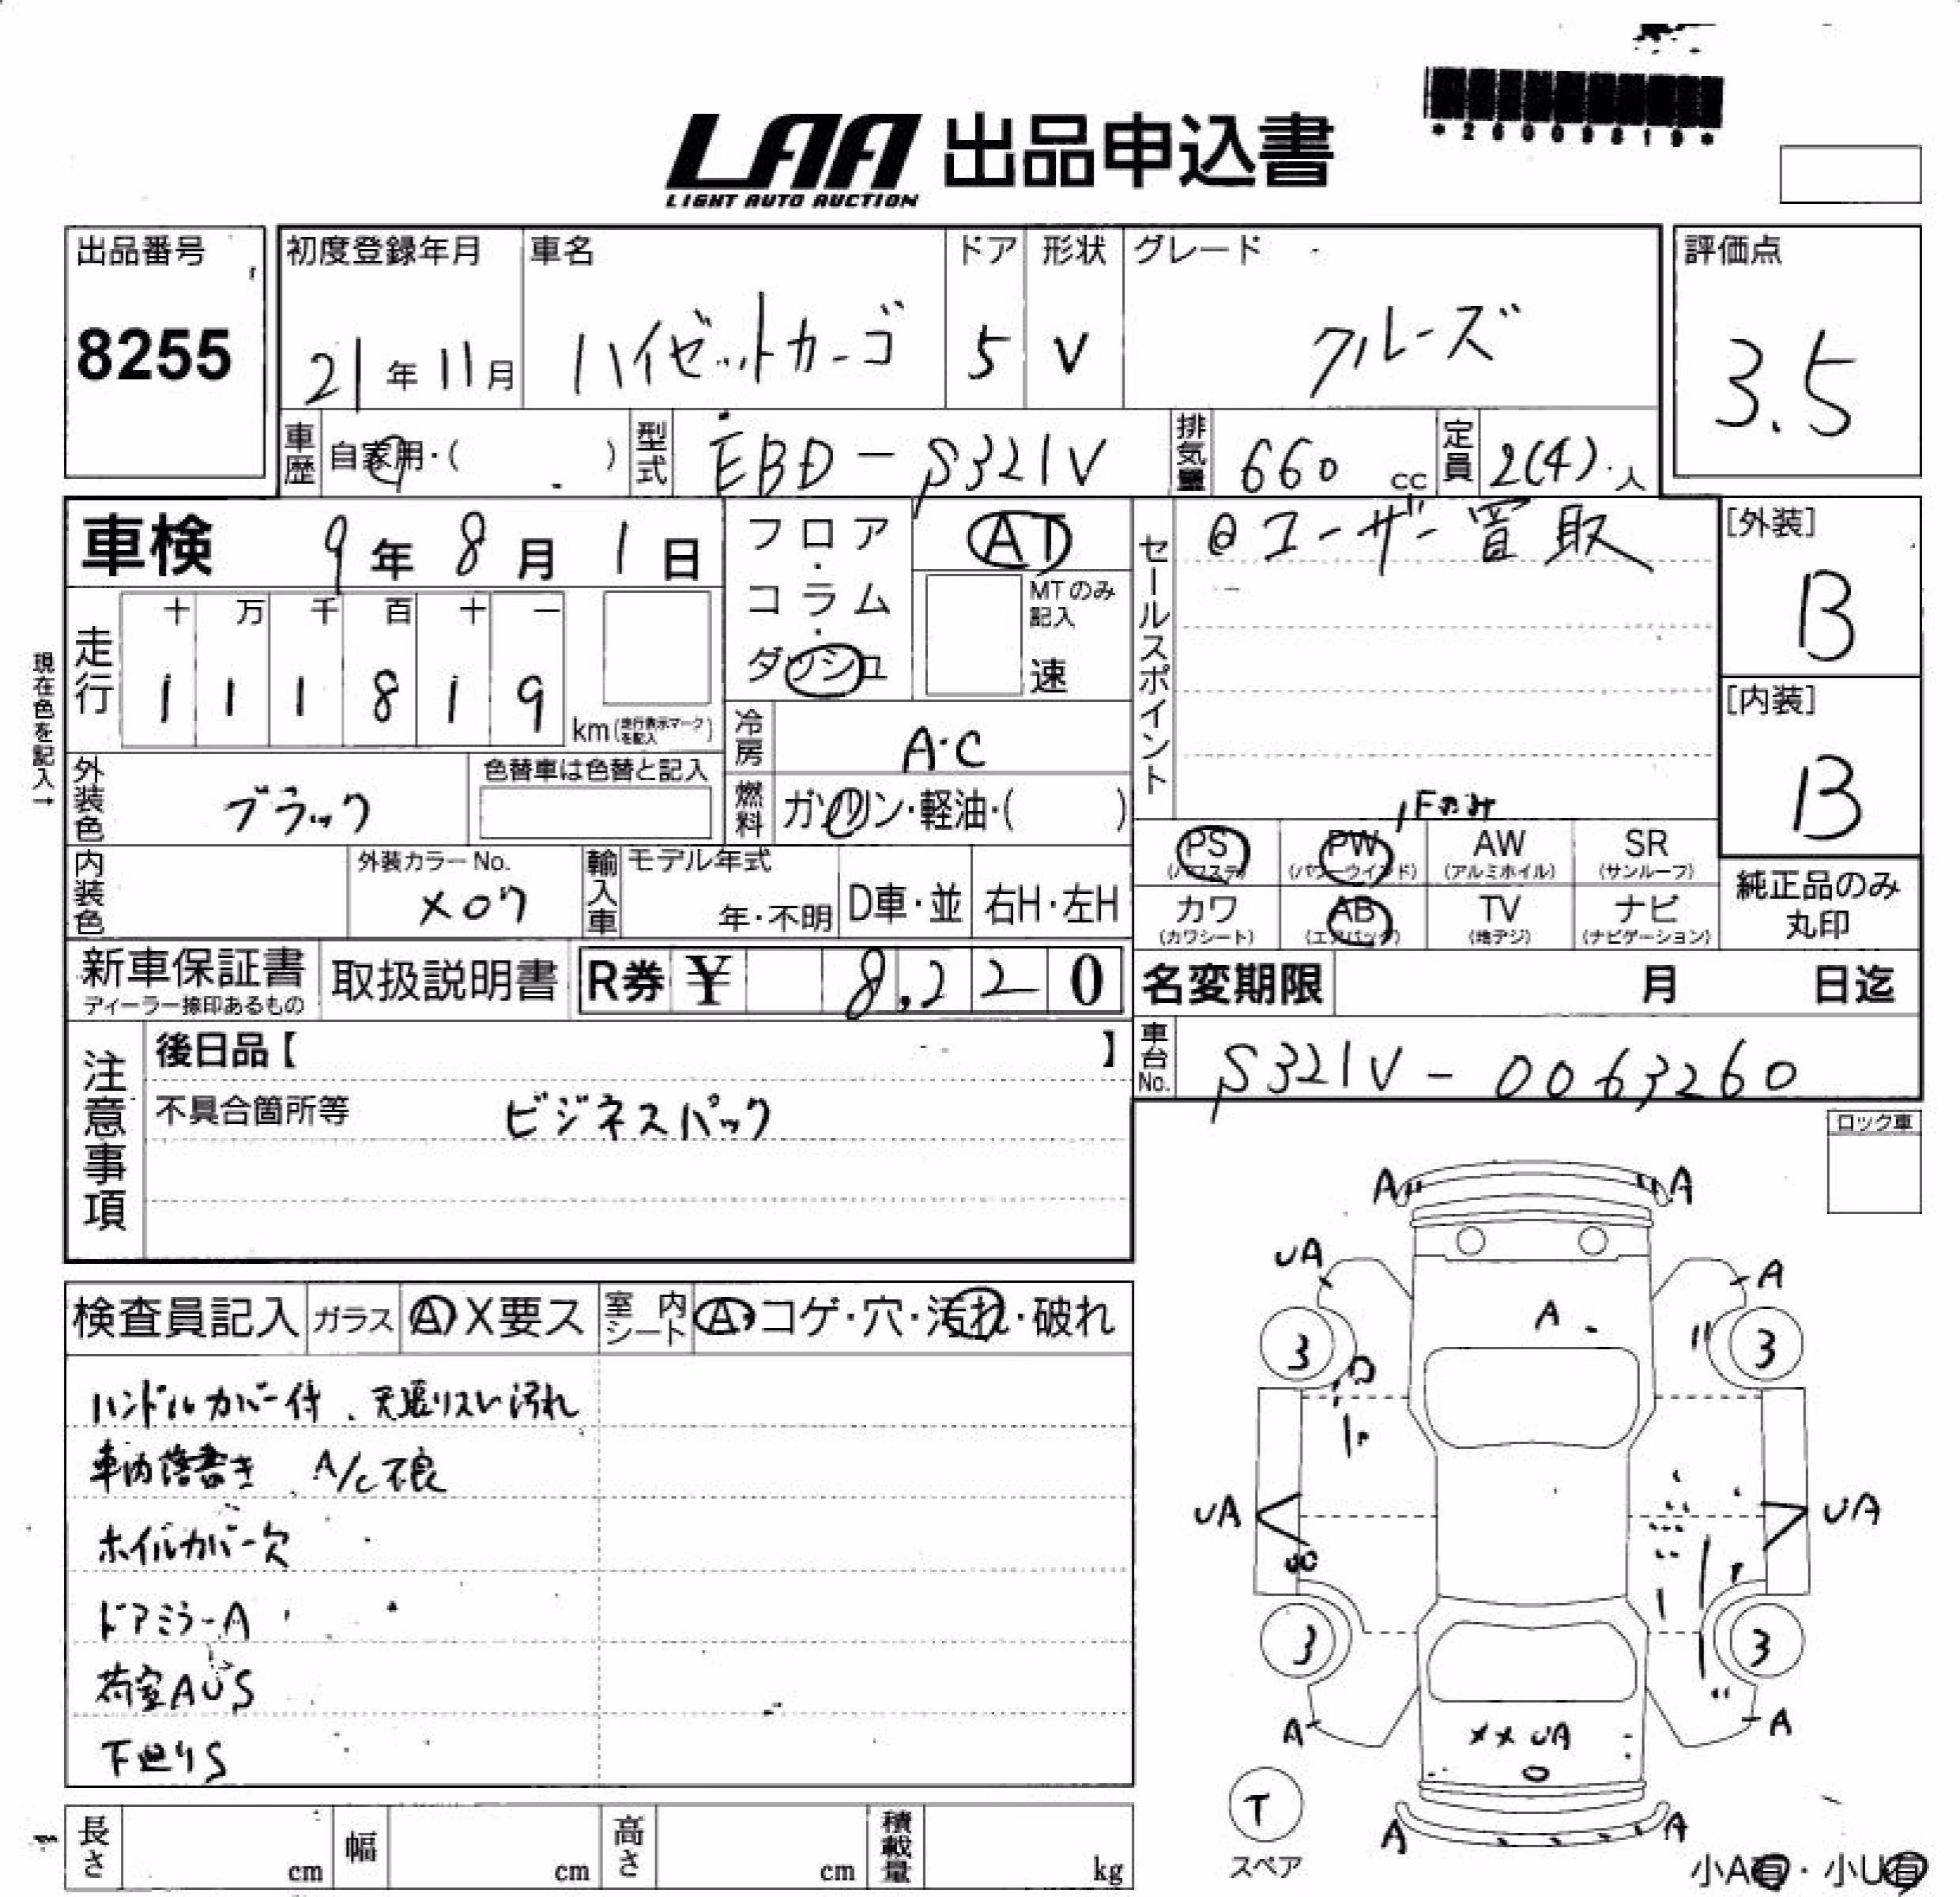 *26009819*
LAA 出品申込書
LIGHT AUTO AUCTION
出品番号
8255
初度登録年月
21年11月
車名
ハイゼットカーゴ
ドア
5
形状
V
グレード
クルーズ
評価点
3.5
車歴 自家用・( )
型式 EBD-S321V
排気量 660cc
定員 2(4)人
車検 9年8月1日
現在色を記入→
走行
十万千百十一
111819
km(走行表示マークを記入)
フロア・コラム・ダッシュ
AT
MTのみ記入
速
冷房 A・C
燃料 ガソリン・軽油・( )
セールスポイント
@ユーザー買取
[外装]
B
[内装]
B
外装色 ブラック
色替車は色替と記入
内装色
外装カラーNo.
X07
輸入車 モデル年式
年・不明
D車・並
右H・左H
Fのみ
PS (パワステ)
PW (パワーウインド)
AW (アルミホイル)
SR (サンルーフ)
カワ (カワシート)
AB (エアバッグ)
TV (地デジ)
ナビ (ナビゲーション)
純正品のみ丸印
新車保証書
ディーラー捺印あるもの
取扱説明書
R券 ¥ 8,220
名変期限 月 日迄
車台No. S321V-0063260
注意事項
後日品【 】
不具合箇所等 ビジネスパック
ロック車
検査員記入
ガラス A X要ス
室内シート A・コゲ・穴・汚れ・破れ
ハンドルカバー付、天張りスレ汚れ
車内落書き、A/C不良
ホイルカバー欠
ドアミラーA
荷室AUS
下廻りS
A A
UA A
A
3 3
UA UA
3 3
A A
XX UA
A A
T
スペア
小A有・小U有
長さ cm
幅 cm
高さ cm
積載量 kg